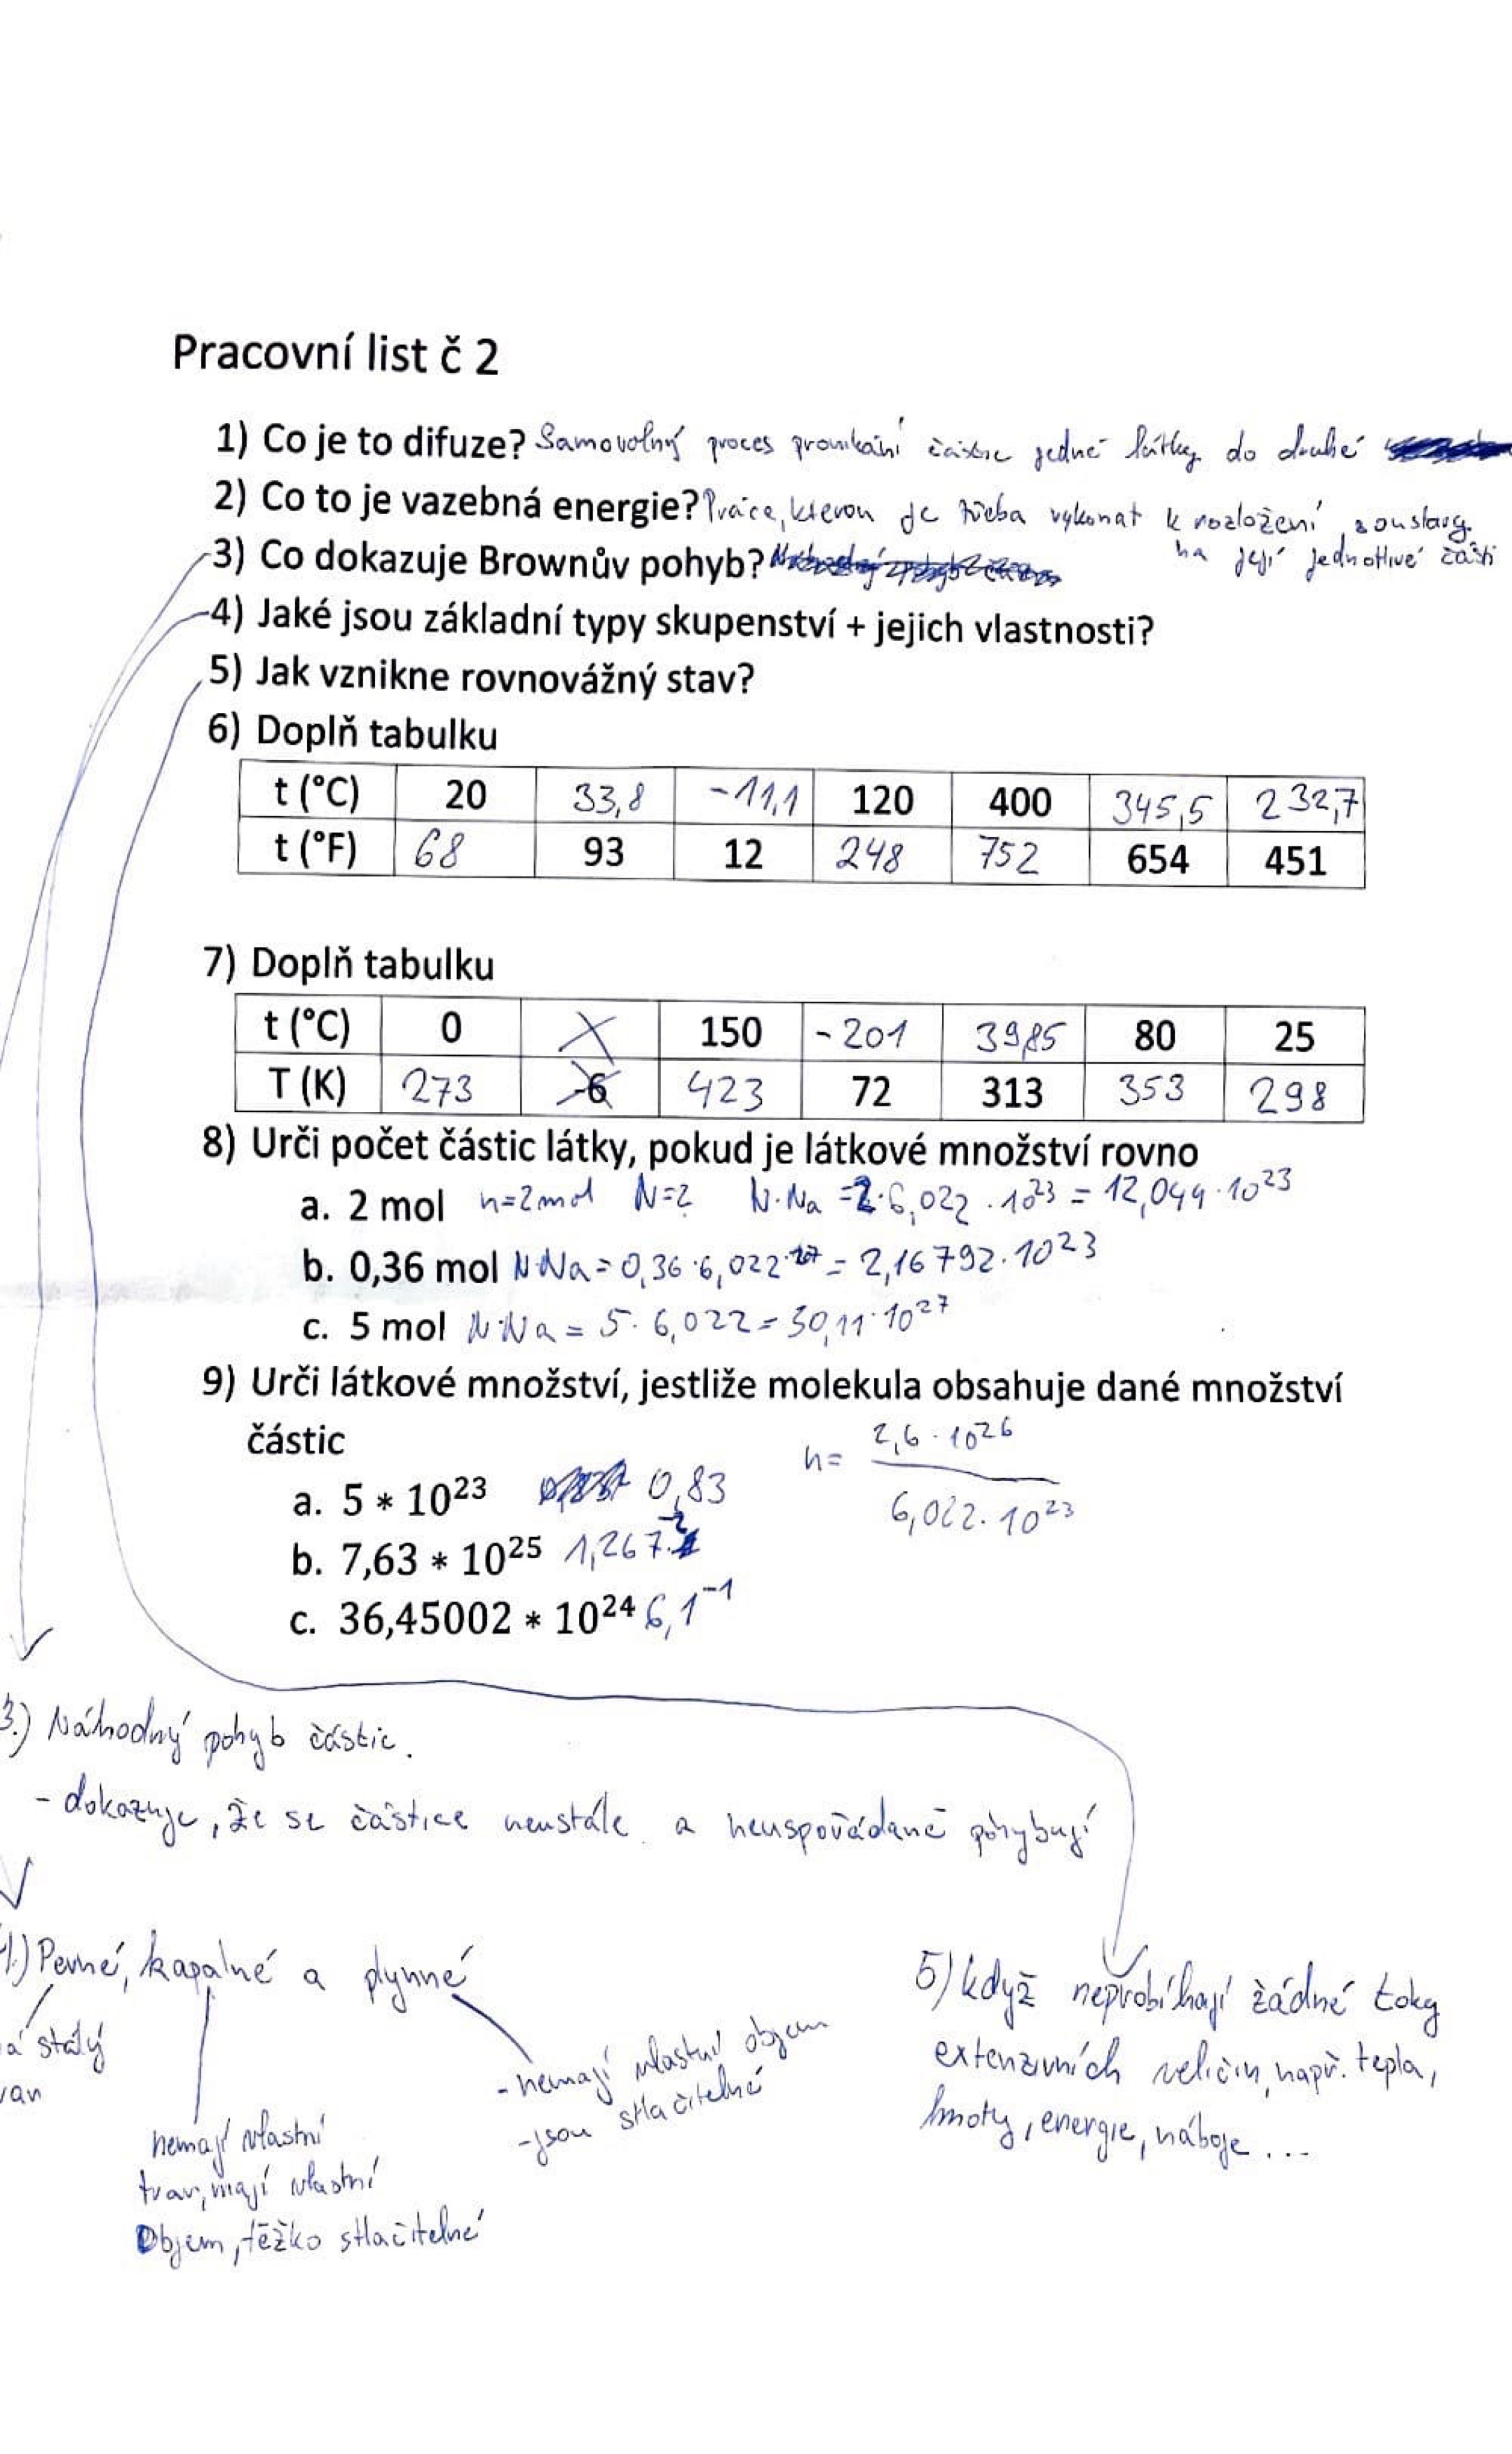 Pracovní list č 2
1) Co je to difuze? Samovolný proces pronikání částic jedné látky do druhé
2) Co to je vazebná energie? Práce, kterou je třeba vykonat k rozložení soustavy
na její jednotlivé části
3) Co dokazuje Brownův pohyb?
4) Jaké jsou základní typy skupenství + jejich vlastnosti?
5) Jak vznikne rovnovážný stav?
6) Doplň tabulku
t (°C) 20 33,8 -11,1 120 400 345,5 232,7
t (°F) 68 93 12 248 752 654 451
7) Doplň tabulku
t (°C) 0 X 150 -201 39,85 80 25
T (K) 273 -6 423 72 313 353 298
8) Urči počet částic látky, pokud je látkové množství rovno
a. 2 mol n=2mol N=? N·Na =2·6,022 · 10²³ = 12,044·10²³
b. 0,36 mol N·Na = 0,36·6,022·²⁷ = 2,16792·10²³
c. 5 mol N·Na = 5·6,022 = 30,11·10²⁷
9) Urči látkové množství, jestliže molekula obsahuje dané množství
částic
n= 2,6·10²⁶
6,022·10²³
a. 5 * 10²³ 0,83
b. 7,63 * 10²⁵ 1,267·⁻²
c. 36,45002 * 10²⁴ 6,1⁻¹
3.) Náhodný pohyb částic.
- dokazuje, že se částice neustále a neuspořádaně pohybují
4.) Pevné, kapalné a plynné
á stálý
nemají vlastní
tvar, mají vlastní
Objem, těžko stlačitelné
- nemají vlastní objem
- jsou stlačitelné
5) když neprobíhají žádné toky
extenzivních veličin, např. tepla,
hmoty, energie, náboje ...